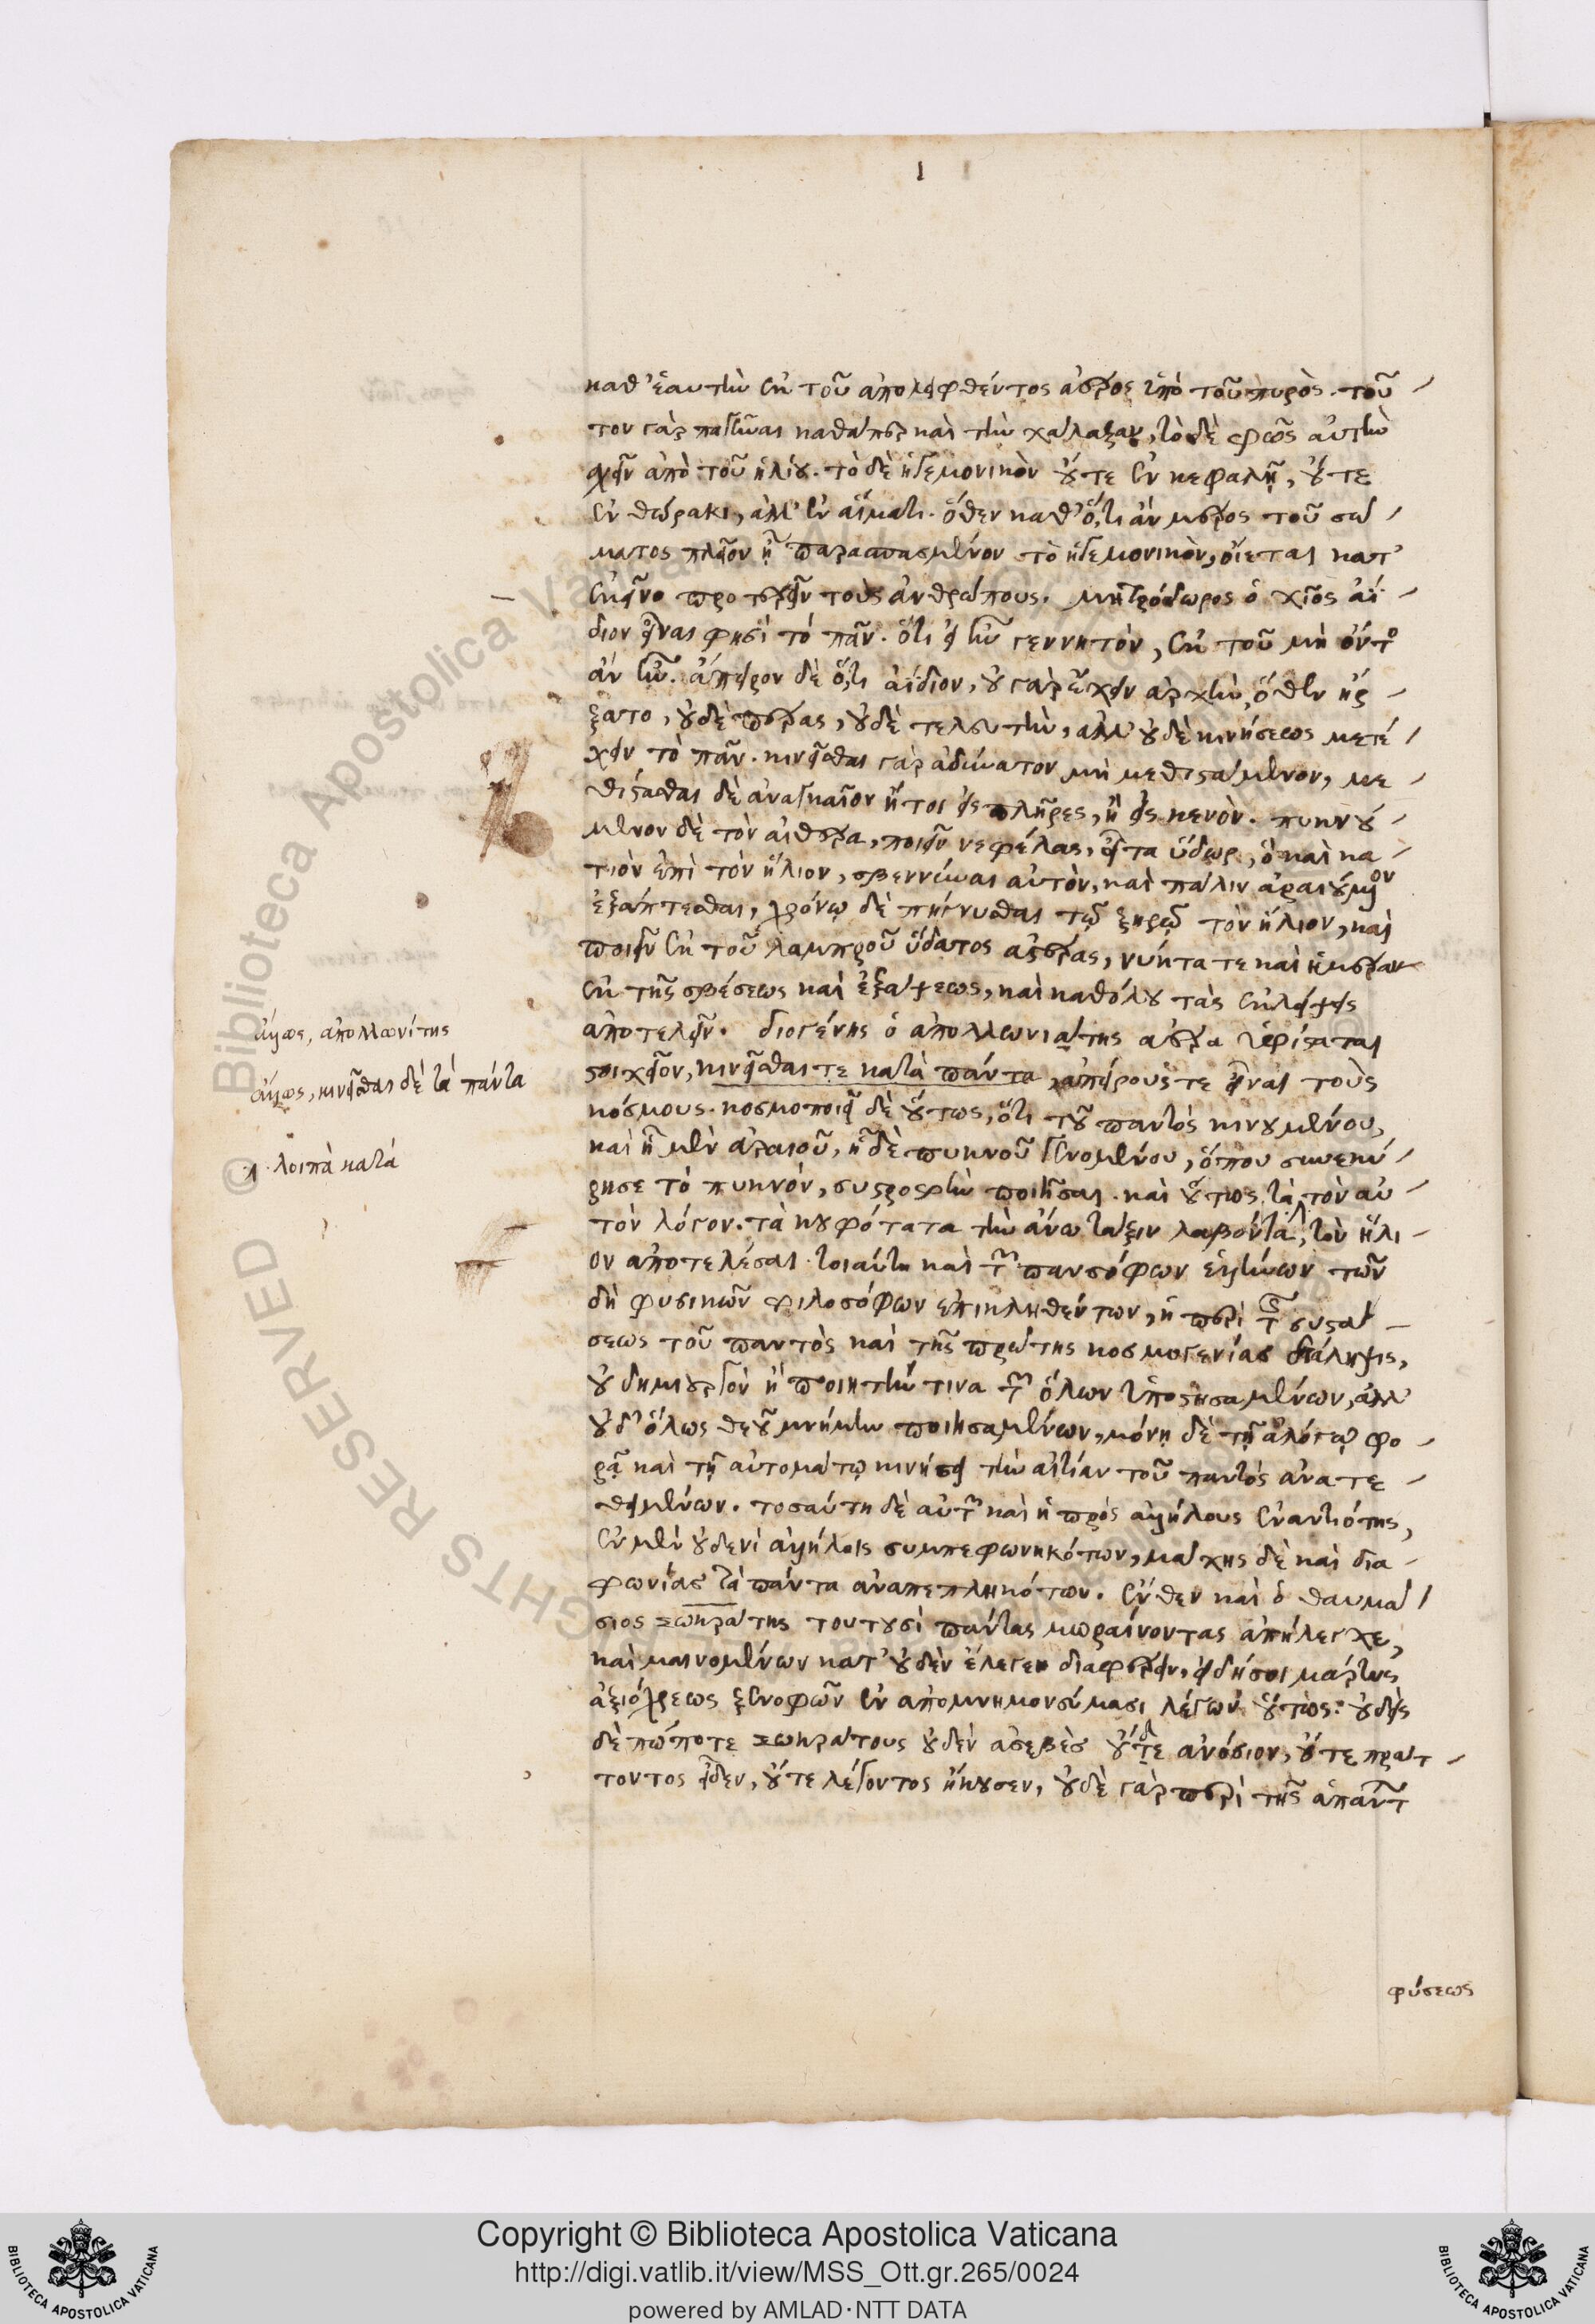 καθ' ἑαυτὴν ἐκ τοῦ ἀπολειφθέντος ἀέρος ὑπὸ τοῦ πυρὸς. τοῦ
τον γὰρ παγῆναι καθάπερ καὶ τὴν χάλαζαν, τὸ δὲ φῶς αὐτὴν
ἔχειν ἀπὸ τοῦ ἡλίου. τὸ δὲ ἡγεμονικὸν οὔτε ἐν κεφαλῇ, οὔτε
ἐν θώρακι, ἀλλ' ἐν αἵματι. ὅθεν καθ' ὅ,τι ἂν μέρος τοῦ σώ
ματος πλεῖον ᾖ παρασπασμένον τὸ ἡγεμονικὸν, οἴεται κατ'
ἐκεῖνο προτερεῖν τοὺς ἀνθρώπους. μητρόδωρος ὁ χῖος ἀΐ
διον εἶναι φησὶ τὸ πᾶν. ὅτι εἰ ἦν γεννητὸν, ἐκ τοῦ μὴ ὄντος
ἂν ἦν. ἄπειρον δὲ ὅ,τι ἀΐδιον, οὐ γὰρ εἶχεν ἀρχὴν, ὅθεν ἤρ
ξατο, οὐδὲ πέρας, οὐδὲ τελευτὴν, ἀλλ' οὐδὲ κινήσεως μετέ
χειν τὸ πᾶν. κινεῖσθαι γὰρ ἀδύνατον μὴ μεθιστάμενον, με
θίστασθαι δὲ ἀναγκαῖον ἤτοι εἰς πλῆρες, ἢ εἰς κενὸν. πυκνού
μενον δὲ τὸν αἰθέρα, ποιεῖν νεφέλας, εἶτα ὕδωρ, ὃ καὶ κα
τιὸν ἐπὶ τὸν ἥλιον, σβεννύναι αὐτὸν, καὶ πάλιν ἀραιούμενον
ἐξάπτεσθαι, χρόνῳ δὲ πήγνυσθαι τῷ ξηρῷ τὸν ἥλιον, καὶ
ποιεῖν ἐκ τοῦ λαμπροῦ ὕδατος ἀστέρας, νύκτα τε καὶ ἡμέραν
ἐκ τῆς σβέσεως καὶ ἐξάψεως, καὶ καθόλου τὰς ἐκλείψεις
ἀποτελεῖν. διογένης ὁ ἀπολλωνιάτης ἀέρα ὑφίσταται
στοιχεῖον, κινεῖσθαι τε κατὰ πάντα, ἀπείρους τε εἶναι τοὺς
κόσμους. κοσμοποιεῖ δὲ οὕτως, ὅτι τοῦ παντὸς κινουμένου,
καὶ ᾗ μὲν ἀραιοῦ, ᾗ δὲ πυκνοῦ γενομένου, ὅπου συνεκύ
ρησε τὸ πυκνόν, συστροφὴν ποιῆσαι. καὶ οὕτως τὰ τὸν αὐ
τὸν λόγον. τὰ κουφότατα τὴν ἄνω τάξιν λαβόντα, τὸν ἥλι
ον ἀποτελέσαι. τοιαύτη καὶ τῶν πανσόφων ἑλλήνων τῶν
δὴ φυσικῶν φιλοσόφων ἐπικληθέντων, ἡ περὶ τῆς συστά
σεως τοῦ παντὸς καὶ τῆς πρώτης κοσμογενίας διάληψις,
οὐ δημιουργὸν ἢ ποιητήν τινα τῶν ὅλων ὑποστησαμένων, ἀλλ'
οὐδ' ὅλως θεοῦ μνήμην ποιησαμένων, μόνῃ δὲ τῇ ἀλόγῳ φο
ρᾷ καὶ τῇ αὐτομάτῳ κινήσει τὴν αἰτίαν τοῦ παντὸς ἀνατε
θειμένων. τοσαύτη δὲ αὐτῶν καὶ ἡ πρὸς ἀλλήλους ἐναντιότης,
ἐν μὲν οὐδενὶ ἀλλήλοις συμπεφωνηκότων, μάχης δὲ καὶ δια
φωνίας τὰ πάντα ἀναπεπληκότων. ἔνθεν καὶ ὁ θαυμά
σιος σωκράτης τουτουσὶ πάντας μωραίνοντας ἀπήλεγχε,
καὶ μαινομένων κατ' οὐδὲν ἔλεγεν διαφέρειν, εἰ δή σοι μάρτυς
ἀξιόχρεως ξενοφῶν ἐν ἀπομνημονεύμασι λέγων οὕτως: οὐδεὶς
δὲ πώποτε σωκράτους οὐδὲν ἀσεβὲς οὔτε ἀνόσιον, οὔτε πράτ
τοντος εἶδεν, οὔτε λέγοντος ἤκουσεν, οὐδὲ γὰρ περὶ τῆς ἁπάντων
φύσεως
ἄλλως, ἀπολλωνίτης
ἄλλως, κινεῖσθαι δὲ τὰ πάντα
λοιπὰ κατά
Copyright © Biblioteca Apostolica Vaticana
http://digi.vatlib.it/view/MSS_Ott.gr.265/0024
powered by AMLAD·NTT DATA